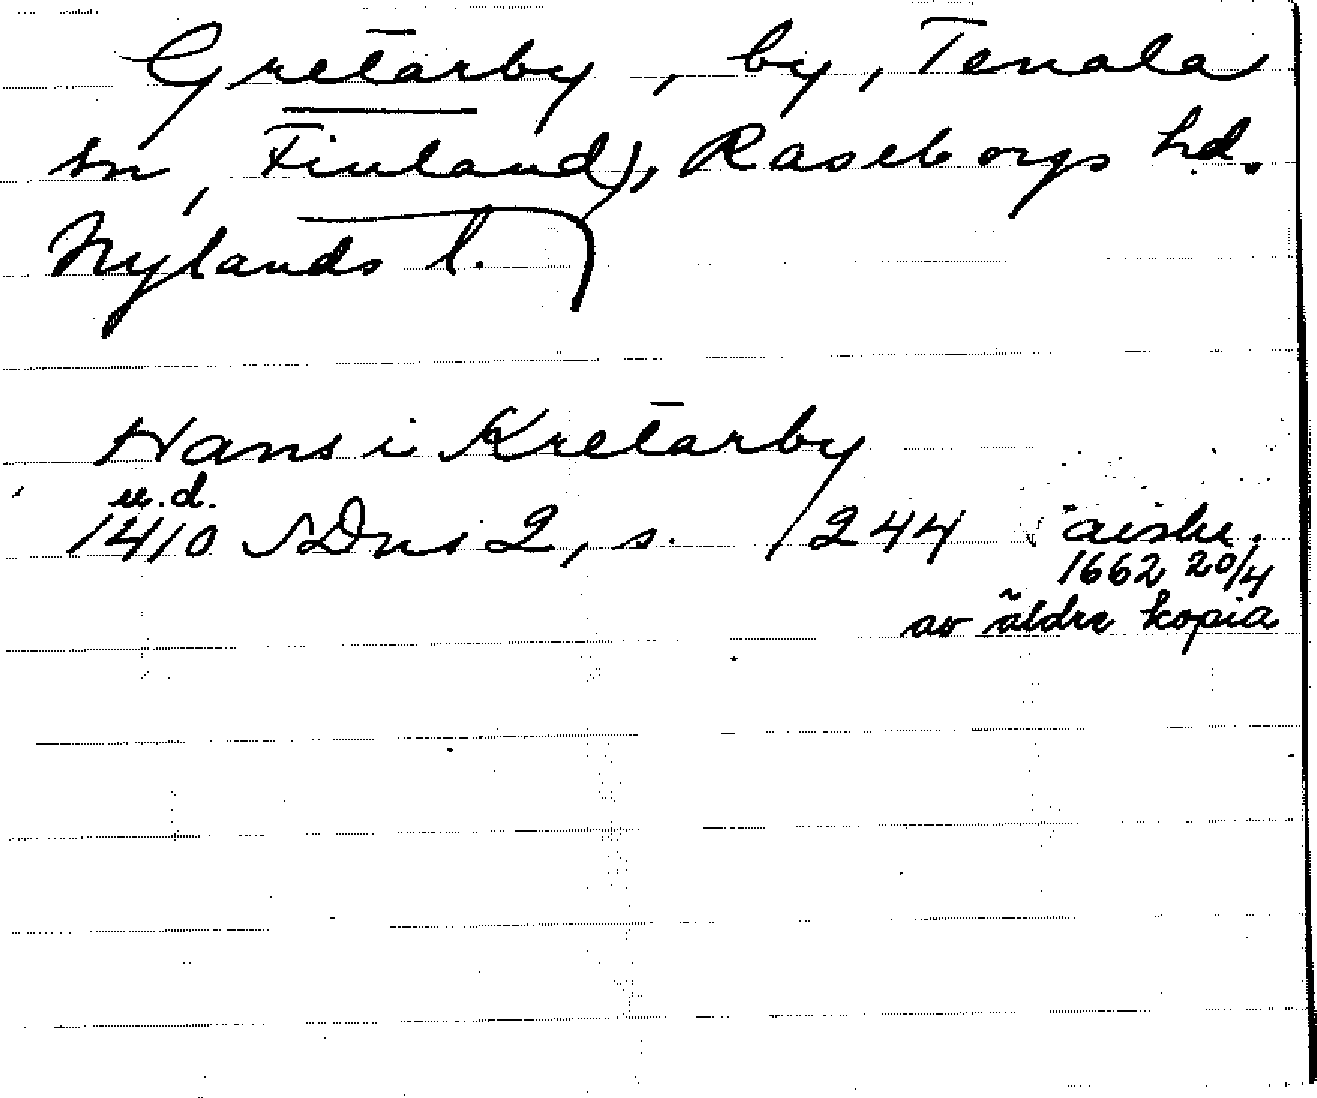 Gretarby, by, Tenala
sn, Finland), Raseborgs hd.
Nylands l.
Hans i Kretarby
u.d.
1410 SDns 2, s. 244 avskr.
1662 20/4
av äldre kopia